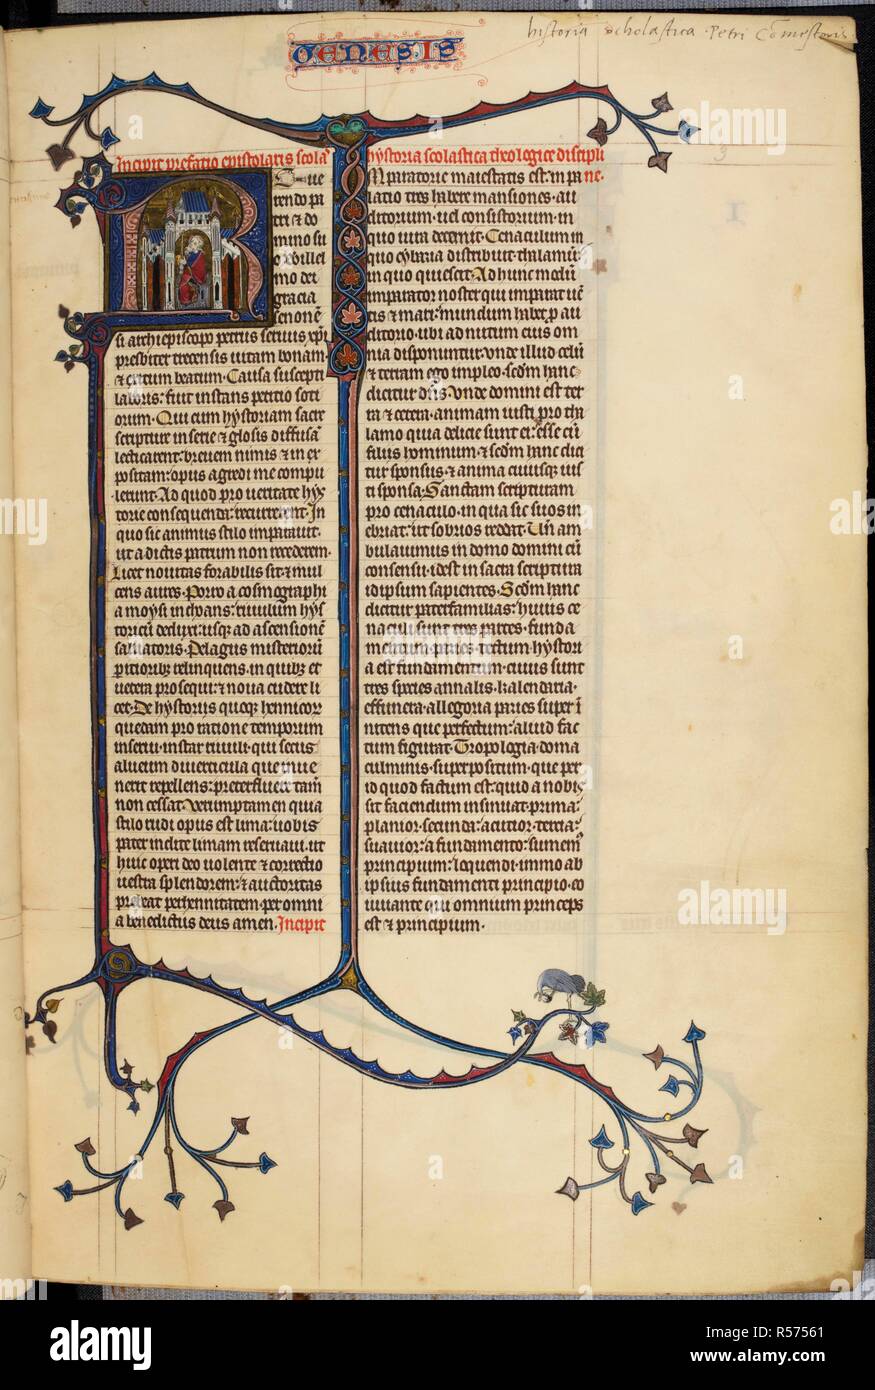 historia scholastica Petri Comestoris
GENESIS
Incipit prefatio epistolaris scola
R Eve
rendo pa
tri & do
mino su
o Willel
mo dei
gracia
senonē
si archiepiscopo petrus seruus xp̄i
presbiter trecensis uitam bonam
& exitum beatum. Causa suscepti
laboris: fuit instans peticio soci
orum. Qui cum hystoriam sacre
scripture in serie & glosis diffusā
lectitarent: breuem nimis & in ex
positam: opus agredi me compu
lerunt. Ad quod pro ueritate hys
torie consequenda: recurrerent. In
quo sic animus stilo imperauit.
ut a dictis patrum non recederem.
Licet nouitas fauorabilis sit: & mul
cens aures. Porro a cosmographi
a moysi inchoans: riuulum hys
toricū deduxi: usque ad ascensionē
saluatoris. Pelagus misteriorū
peritioribus relinquens. in quibus et
uetera prosequi: & noua cudere li
cet. De hystoriis quoque hennicor
quedam pro ratione temporum
inserui. instar riuuli. qui secus
alueum diuerticula que inue
nerit repellens: preterfluere tam̄
non cessat. Verumptamen quia
stilo rudi opus est lima: uobis
pater inclite limam reseruaui. ut
huic operi deo uolente & correctio
uestra splendorem: & auctoritas
prebeat perhennitatem. per omni
a benedictus deus amen. Incipit
hystoria scolastica theologice discipli
Mperatorie maiestatis est in pa ne.
latio tres habere mansiones. au
ditorium. uel consistorium. in
quo iura decernit. Cenaculum in
quo cybaria distribuit. thalamū.
in quo quiescit. Ad hunc modū.
imperator noster qui imperat uē
tis & mari: mundum habet pro au
ditorio. ubi ad nutum eius om
nia disponuntur. vnde illud celū
& terram ego impleo. Secundum hanc
dicitur dn̄s. Vnde domini est ter
ra & cetera. animam iusti pro tha
lamo quia delicie sunt ei: esse cū
filiis hominum. & secundum hanc dici
tur sponsus. & anima cuiusque ius
ti sponsa. Sanctam scripturam
pro cenaculo. in qua sic suos in
ebriat: ut sobrios reddat. Vn̄ am
bulauimus in domo domini cū
consensu. id est in sacra scriptura
id ipsum sapientes. Secundum hanc
dicitur paterfamilias: huius ce
naculi sunt tres partes. funda
mentum. paries. tectum hystori
a est fundamentum. cuius sunt
tres species annalis. kalendaria.
effimera. allegoria paries super ī
nitens que perfectum: aliud fac
tum figurat. Tropologia doma
culminis. superpositum. que per
id quod factum est: quid a nobis
sit faciendum insinuat. prima:
planior. secunda: acutior. tercia:
suauior: a fundamento: sumem⁹
principium: loquendi. immo ab
ipsius fundamenti principio. eo
iuuante qui omnium princeps
est & principium.
a alamy stock photo
alamy
Image ID: R57561
www.alamy.com